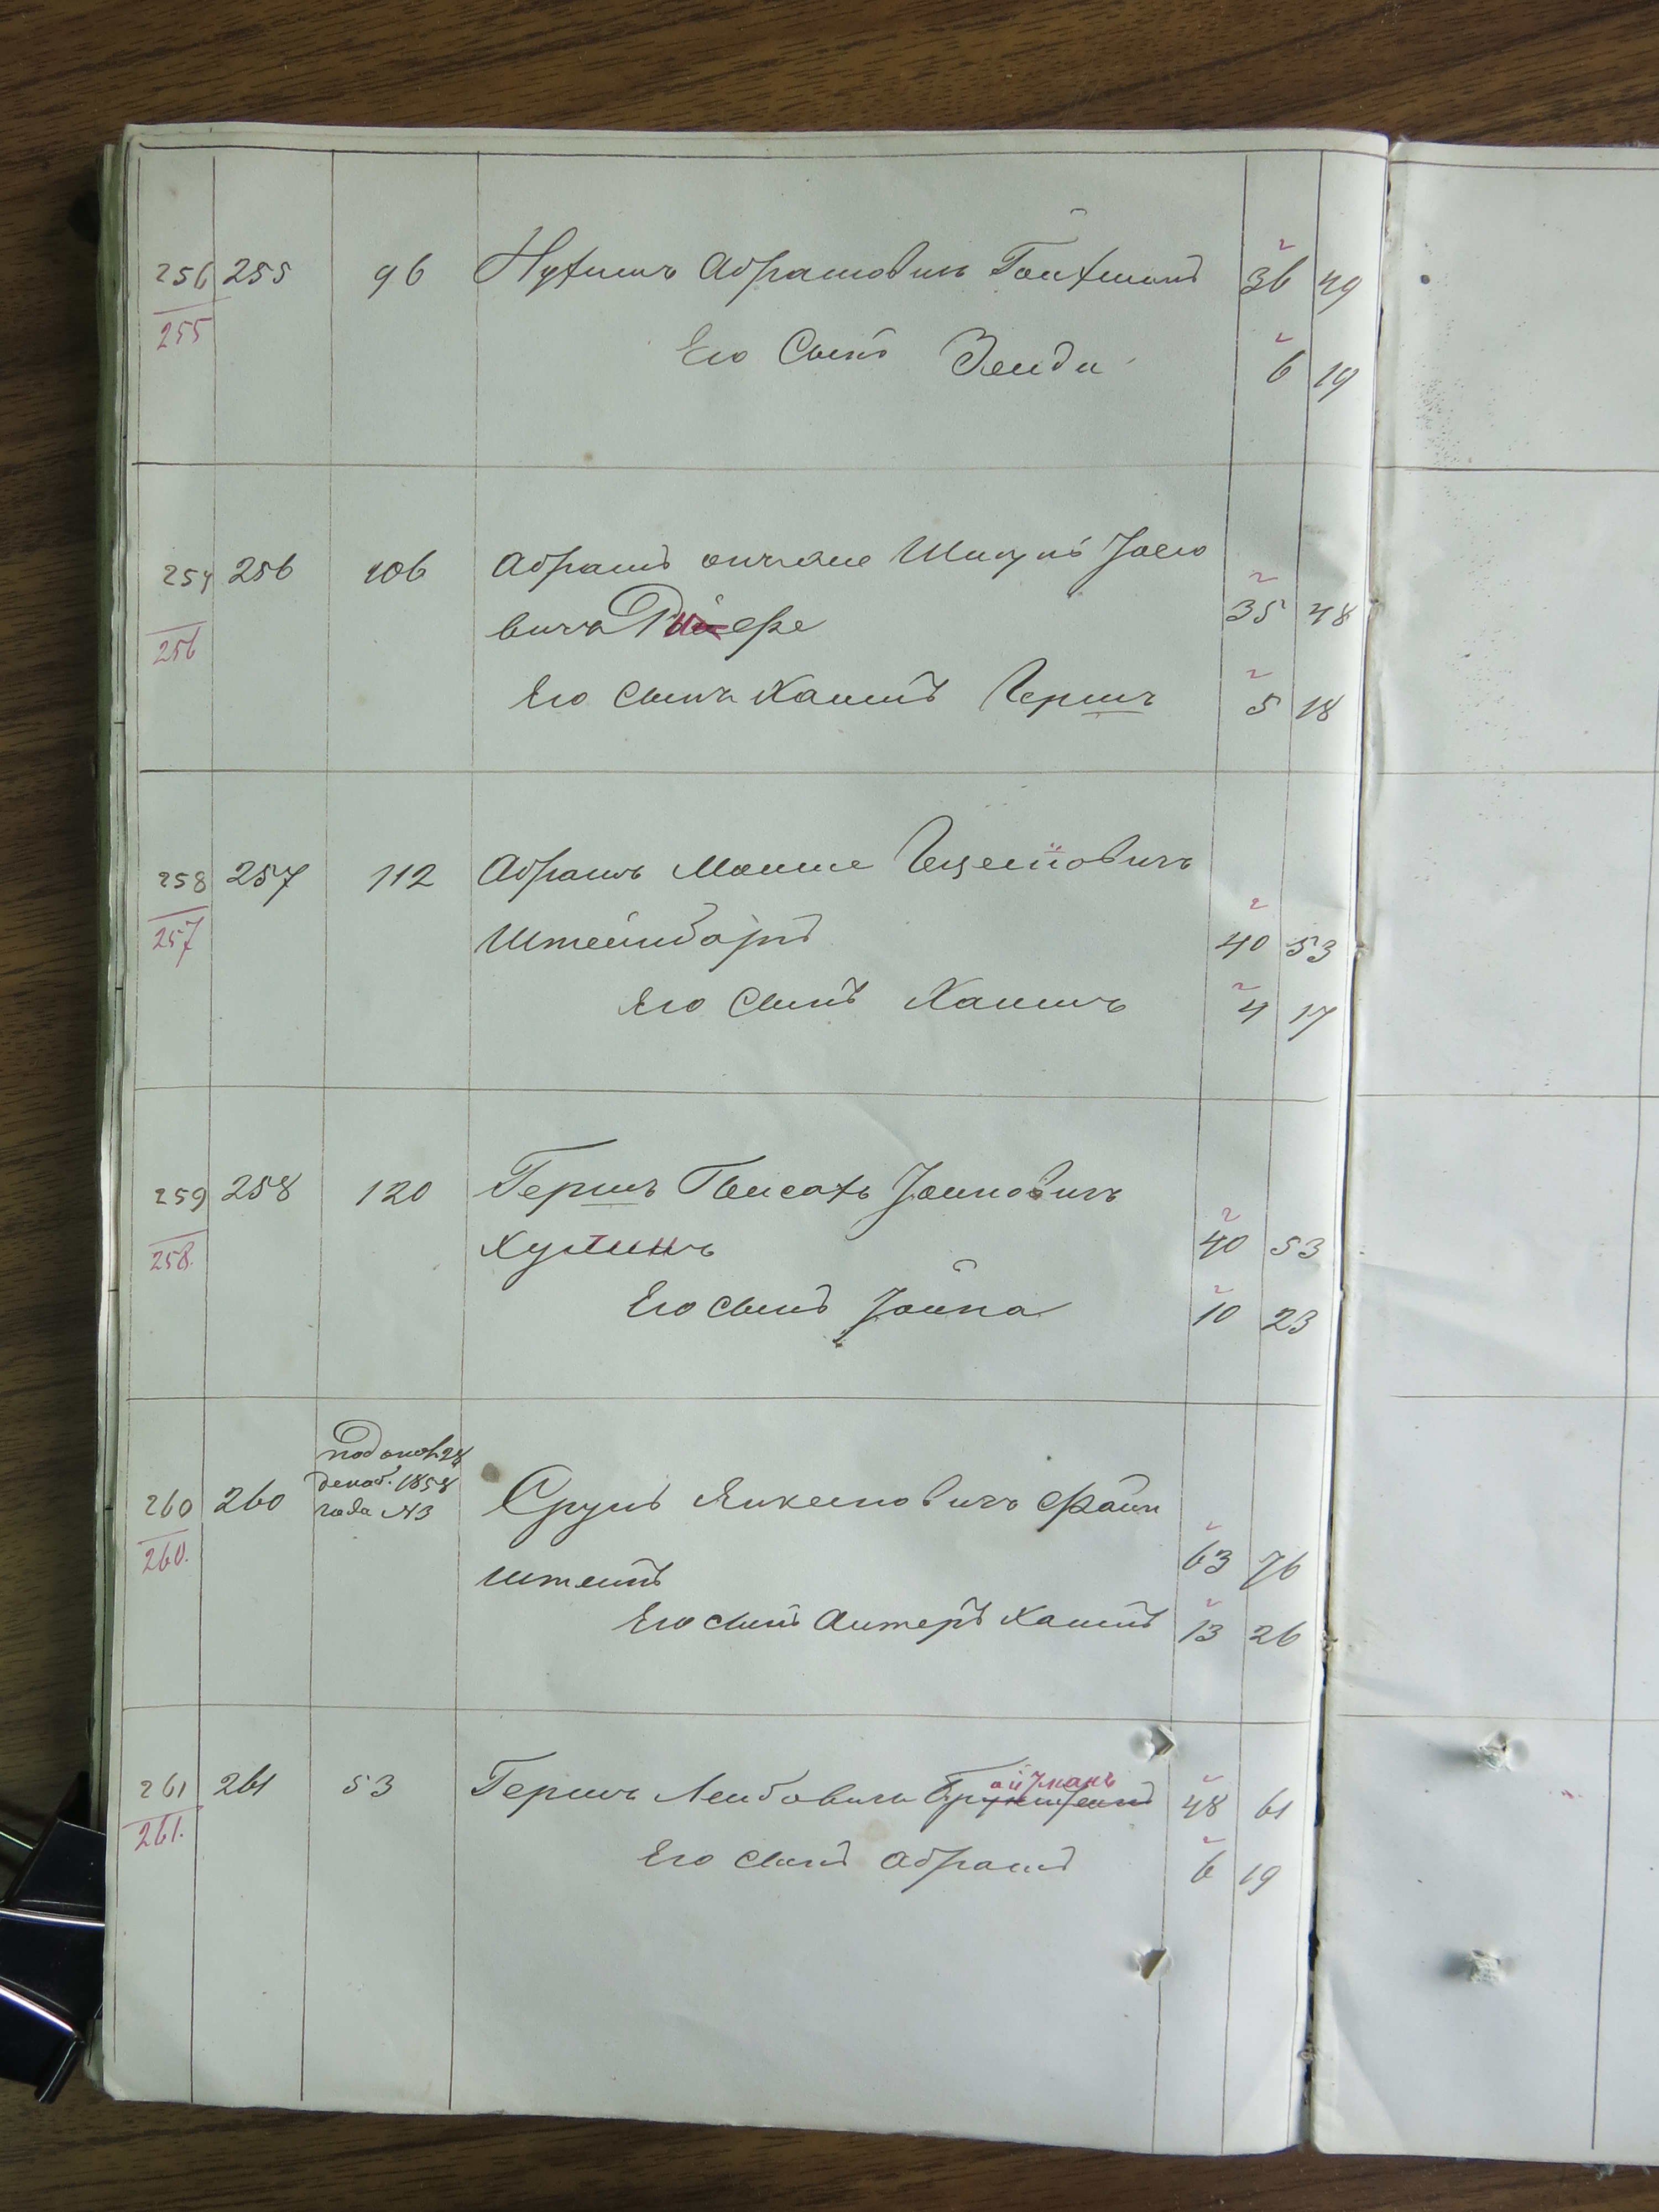 256 255 96 Нухимъ Абрамовичъ Гойхманъ 36 49
255
Его Сынъ Зейди 6 19
257 256 106 Абрамъ онъ же Шмулъ Іосіо
256 вичъ 35 48
Его сынъ Хаимъ Гершъ 5 18
258 257 112 Абрамъ Мошке
257 Штейнбаргъ 40 53
Его Сынъ Хаимъ 4 17
259 258 120 Гершъ Пейсахъ Іойновичъ
258. 40 53
Его сынъ Іойна 10 23
под окон. 28
декаб. 1858
года №3
260 260 Сруль Янкелевичъ Файн
260. штейнъ 63 76
Его сынъ Антеръ Хаимъ 13 26
айзманъ
261 261 53 Гершъ Лейбовичъ 48 61
261.
Его сынъ Абрамъ 6 19